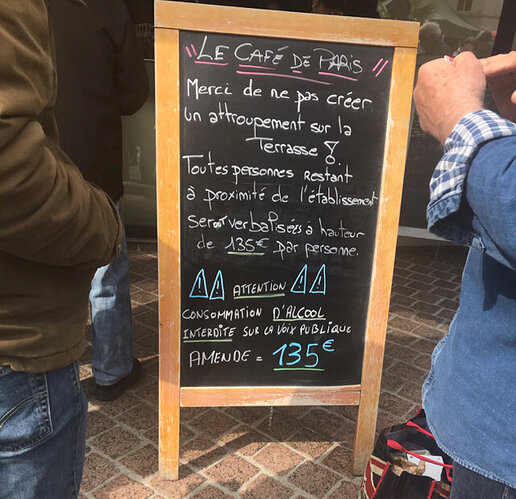 "LE CAFÉ DE PARIS"
Merci de ne pas créer
un attroupement sur la
Terrasse !
Toutes personnes restant
à proximité de l'établissement
seront verbalisées à hauteur
de 135€ par personne.
⚠ ⚠ ATTENTION ⚠ ⚠
CONSOMMATION D'ALCOOL
INTERDITE SUR LA VOIX PUBLIQUE
AMENDE = 135€